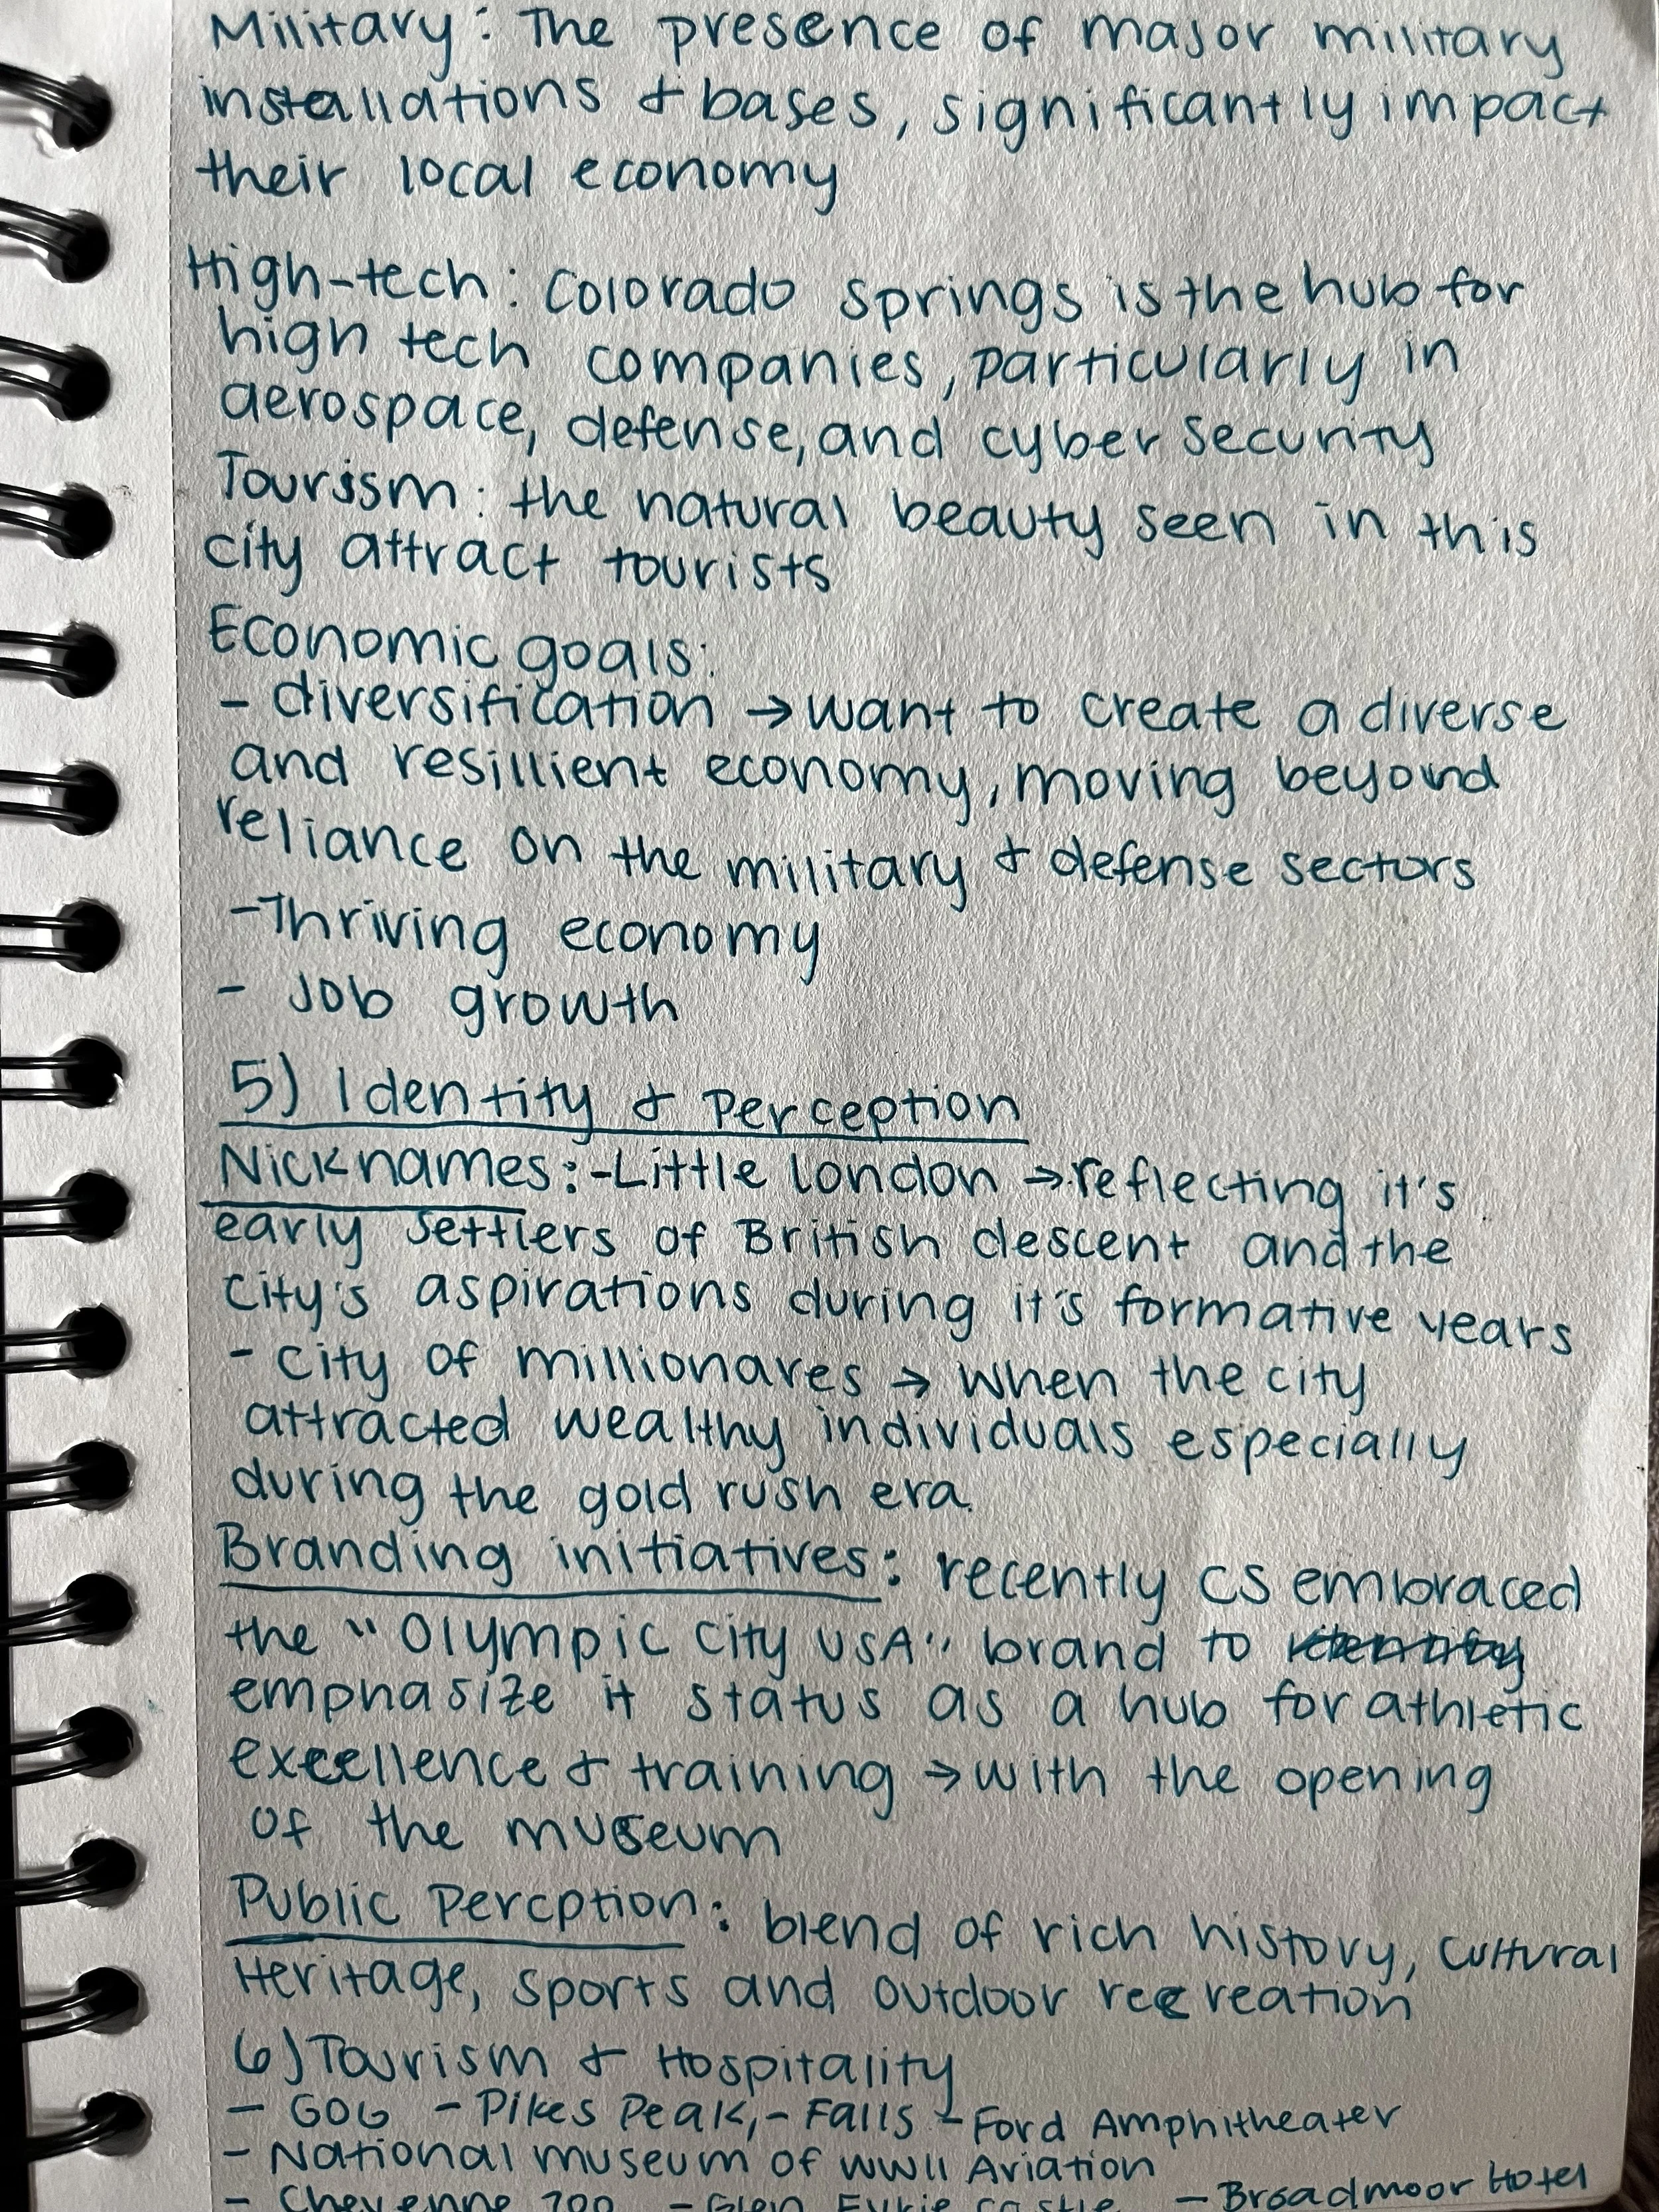 Military: The presence of major military
installations & bases, significantly impact
their local economy
High-tech: Colorado springs is the hub for
high tech companies, particularly in
aerospace, defense, and cyber security
Tourism: the natural beauty seen in this
city attract tourists
Economic goals:
- diversification → want to create a diverse
and resillient economy, moving beyond
reliance on the military & defense sectors
- Thriving economy
- Job growth
5) Identity & Perception
Nicknames: - Little london → reflecting it's
early settlers of British descent and the
city's aspirations during it's formative years
- city of millionares → when the city
attracted wealthy individuals especially
during the gold rush era.
Branding initiatives: recently CS embraced
the "Olympic City USA" brand to
emphasize it status as a hub for athletic
excellence & training → with the opening
of the museum
Public Percption: blend of rich history, cultural
Heritage, sports and outdoor recreation
6) Tourism & Hospitality
- GOG - Pikes Peak, - Falls - Ford Amphitheater
- National museum of WWII Aviation
- Cheyenne zoo - Glen Eyrie castle - Broadmoor Hotel